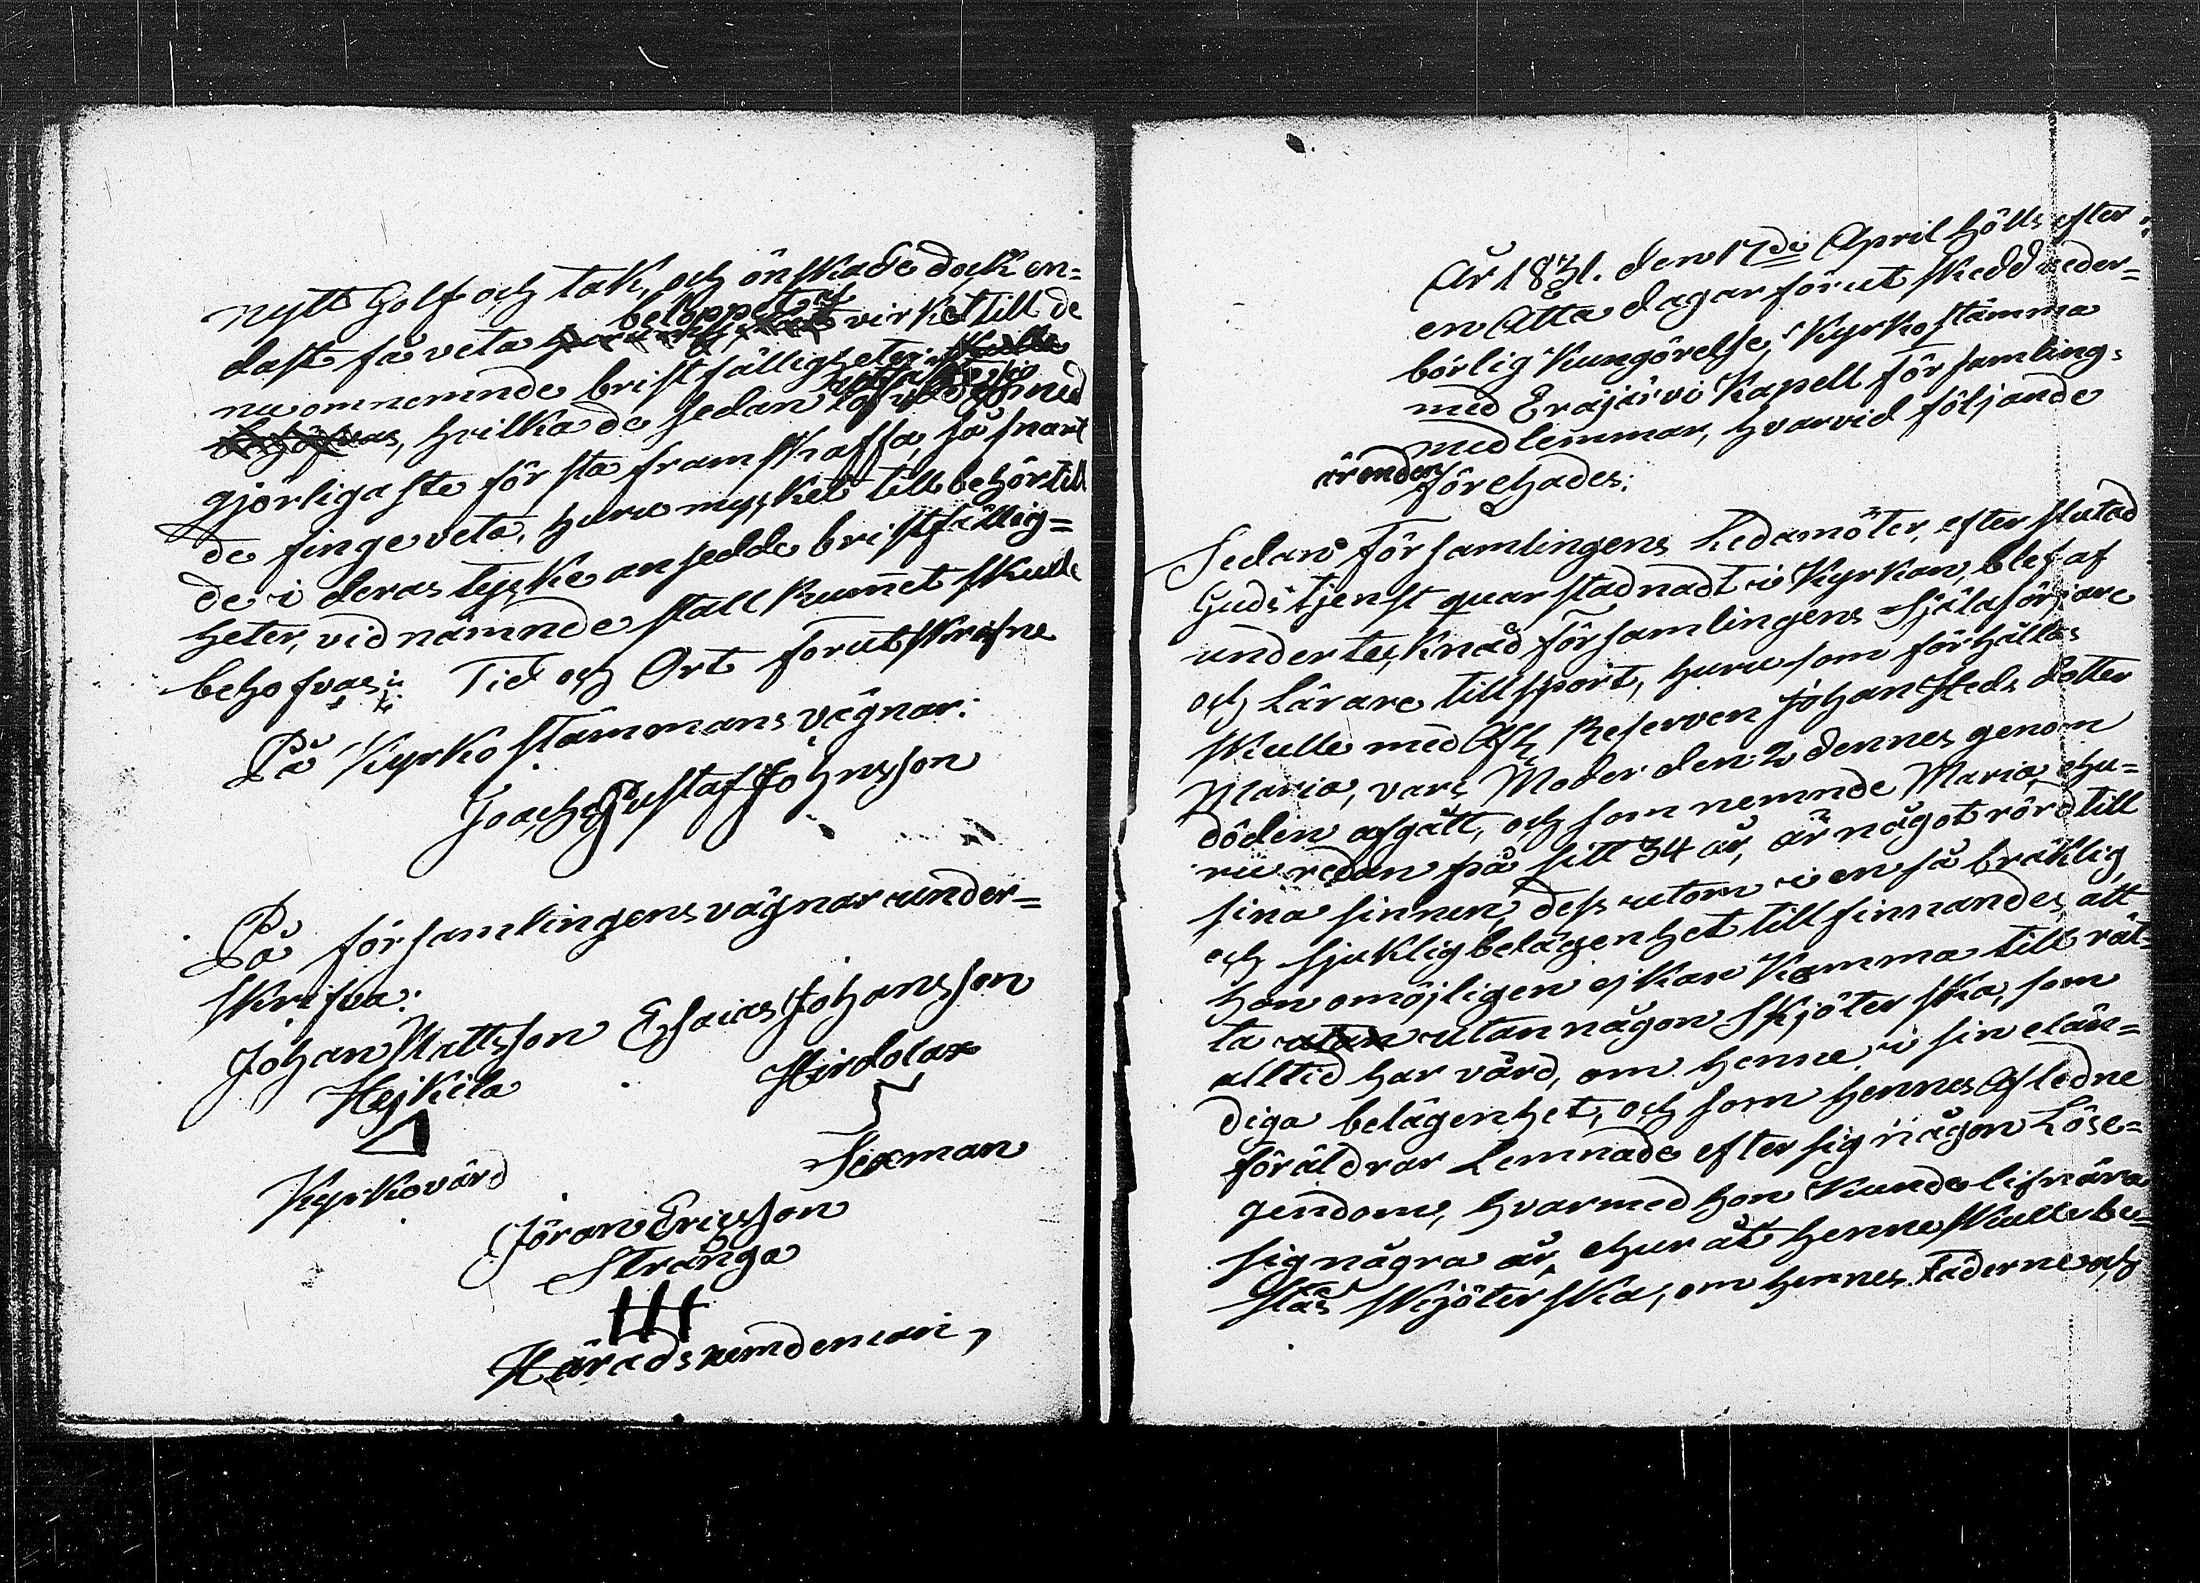 nytt Golf och tak, och önskade dock en=
dast få veta beloppet af virket till de
nu omnemnde bristfälligheter skulle
behöfvas, hvilka de sedan med
gjörligaste första framskaffa, så snart
de finge veta, huru mycket till behör till
de i deras tycke ansedde bristfällig=
heter, vid nämnde stall Rummet skulle
behöfvas. Tid och Ort förutskrifne
På Kyrko stämmans vägnar:
Joach Gustaf Johnsson
På församlingens vägnar under=
skrifva:
Johan Mattsson Esaias Johansson
Hejkilä Hirdolax
Kyrkovärd Sexman
Jöran Ericsson
Stränga
Häradsnemdeman,
År 1831. den 17de April hölls efter
en Åtta dagar förut skedd veder=
börlig Kungörelse, Kyrkostämma
med Eräjärvi Kapell Församlings
medlemmar, hvarvid följande
ärenden förehades:
Sedan Församlingens Ledamöter, efter slutad
Gudstjenst quarstadnadt i Kyrkan, blef af
undertecknad Församlingens Själasörjare
och Lärare tillsport, huru som förhållas
skulle med Afl. Reserven Johan Steds dotter
Maria, vars Moder den 2 dennes genom
döden afgått, och som nemnde Maria, ehu=
ru redan på sitt 34 år, är något rörd till
sina sinnen, dess utom i en så bräklig
och sjuklig belägenhet till finnandes, att
hon omöjligen ej kan komma till rät=
ta utan utan någon Skjöterska, som
alltid har vård, om henne i sin elän=
diga belägenhet, och som hennes Aflidne
föräldrar Lemnade efter sig någon Löse=
gendom, hvarmed hon kunde lifnära
sig några år, ehur åt henne skulle be=
stås skjöterska, om hennes Fäderne och